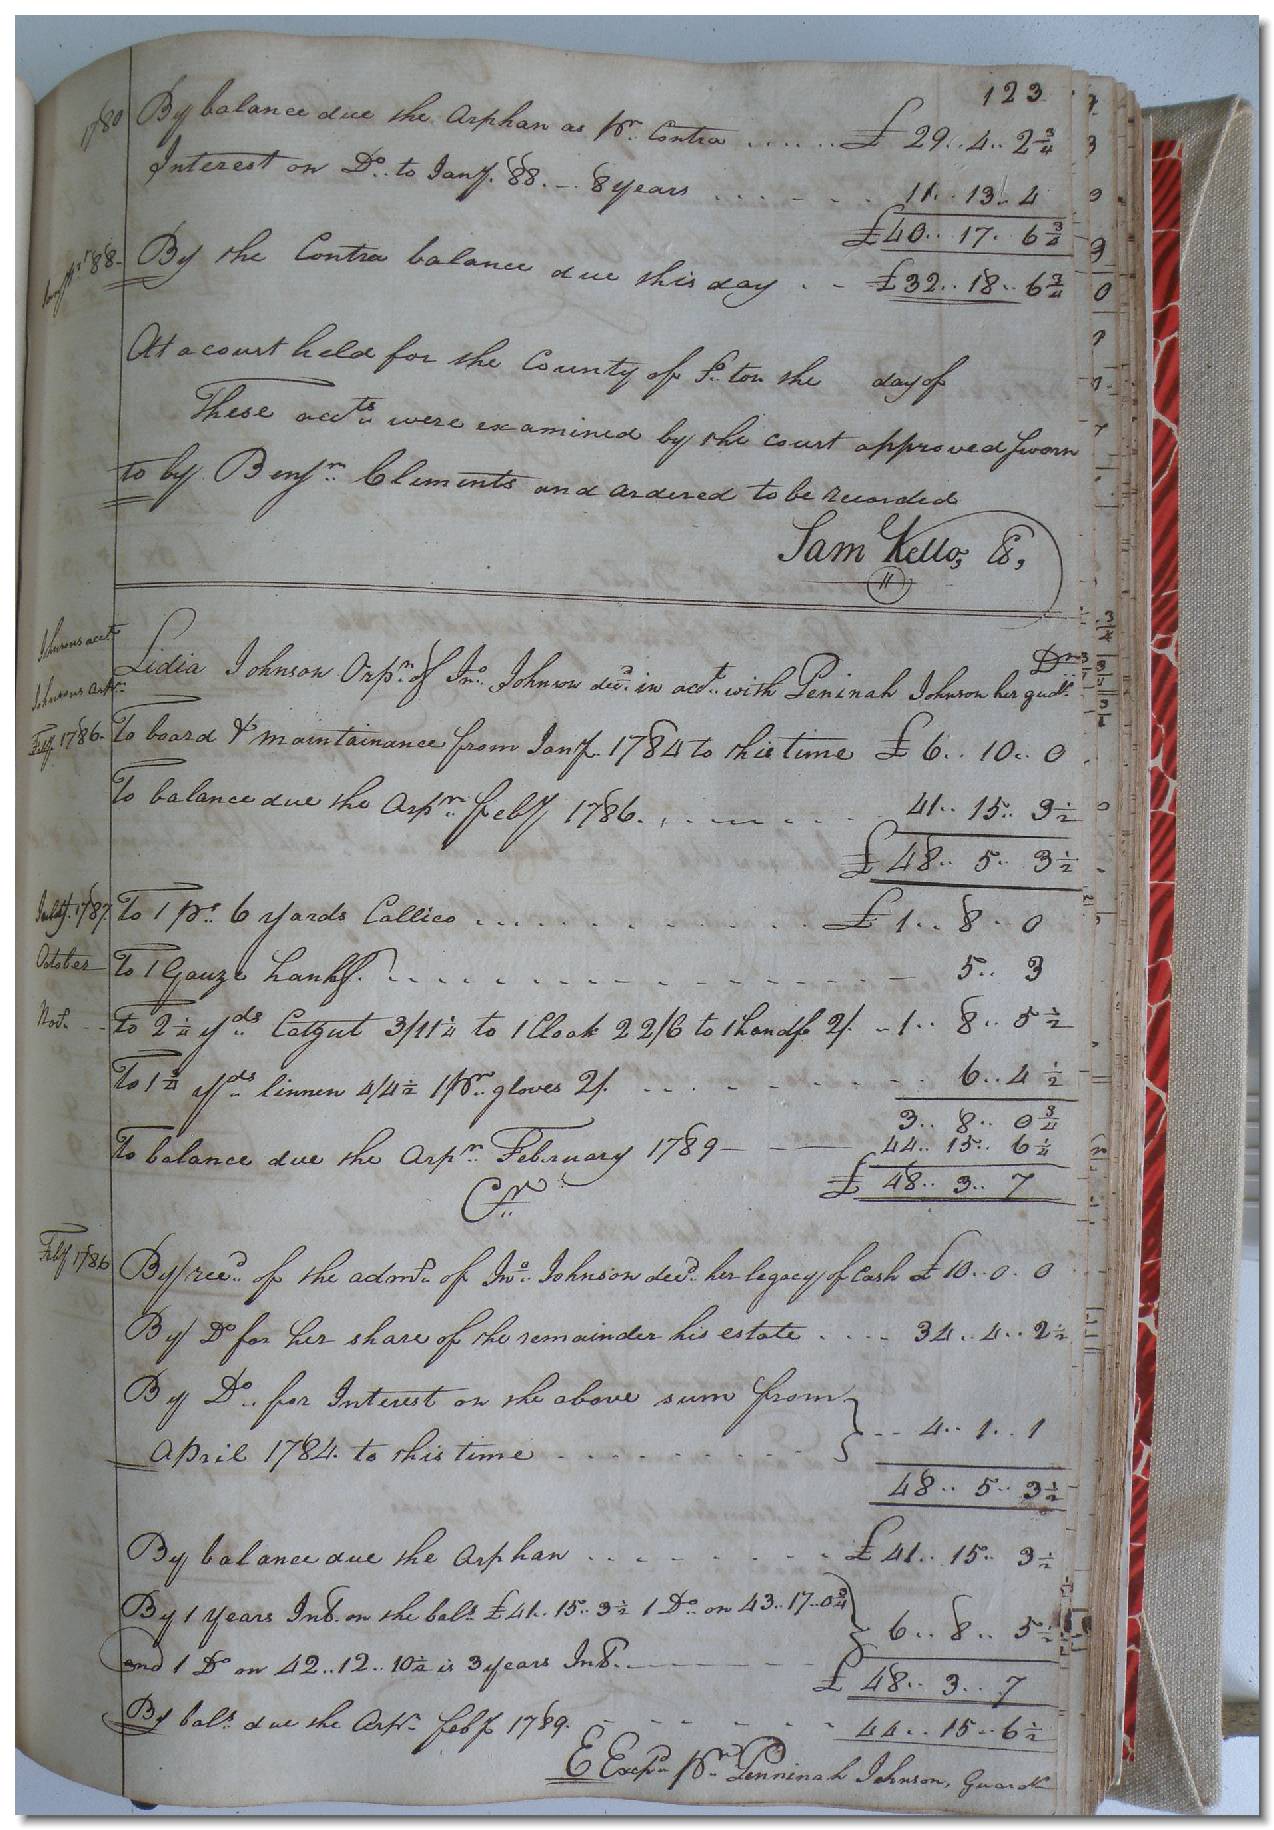 123
1780 By balance due the Orphan as pr. Contra ...... £ 29..4..2 3/4
Interest on Do.. to Jany. 88. - 8 years ..... 11..13..4
£40..17..6 3/4
88. By the Contra balance due this day .. £32..18..6 3/4
At a court held for the County of So. ton the day of
These accts. were examined by the court approved sworn
to by Benjn. Clements and ordered to be recorded
Sam Kello, C,
Johnsons acct
Johnsons orpn. Lidia Johnson Orpn. of Jno. Johnson decd. in acct. with Peninah Johnson her gudn. Dr
Feby 1786. To board & maintainance from Jany. 1784 to this time £ 6..10..0
To balance due the Orpn. feby 1786. ....... 41..15..3 1/2
£ 48..5..3 1/2
July. 1787. To 1 ps. 6 yards Callico .......... £ 1..8..0
October To 1 Gauze hankf. .......... 5..3
Novr. -- to 2 1/4 yds Catgut 3/11 1/4 to 1 Cloak 22/6 to 1 handf 2/. - 1..8..5 1/2
To 1 3/4 yds linnen 4/4 1/2 1 pr. gloves 2/. ....... 6..4 1/2
3..8..0 3/4
To balance due the Orpn. February 1789 -- 44..15..6 1/4
£ 48..3..7
Cr.
Feby 1786 By recd. of the admr. of Jno. Johnson decd. her legacy of Cash £ 10..0..0
By Do for her share of the remainder his estate .... 34..4..2 1/2
By Do.. for Interest on the above sum from
April 1784. to this time ....... 4..1..1
48..5..3 1/2
By balance due the Orphan ........ £ 41..15..3 1/2
By 1 Years Intt. on the bals. £41..15..3 1/2 1 Do. on 43..17..0 3/4
and 1 Do on 42..12..10 1/2 is 3 years Intt. ----- 6..8..5 1/2
£ 48..3..7
By bals. due the Orpn. feby 1789. ------ 44..15..6 1/2
E Excepd. pr. Penninah Johnson, Guardn